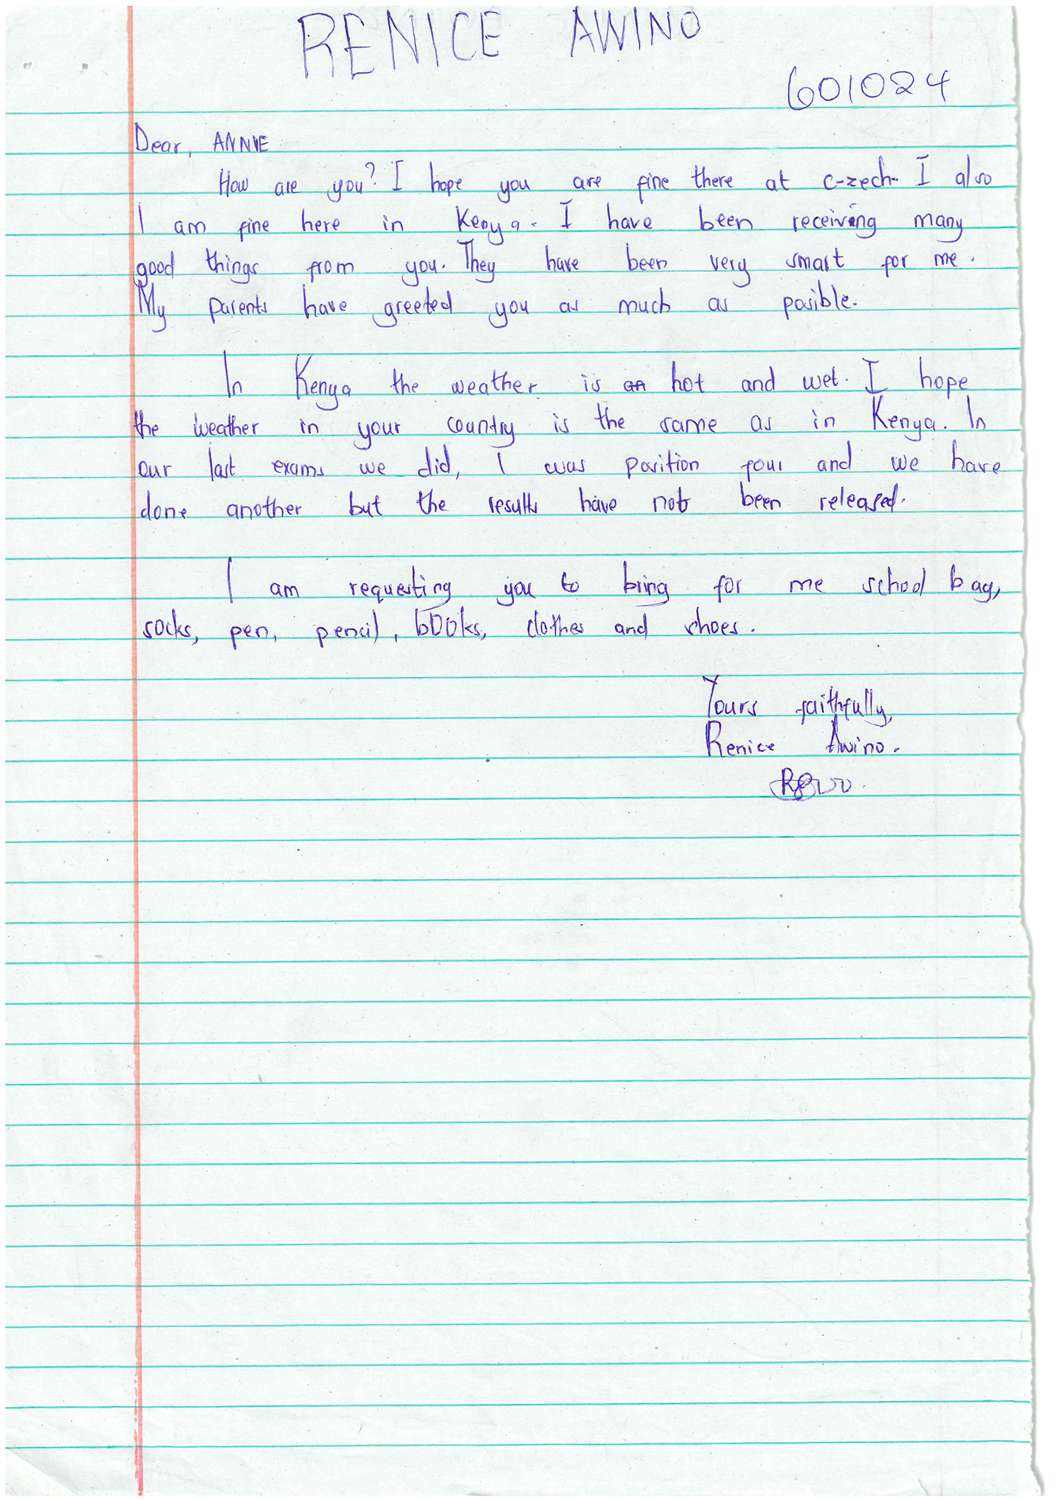 RENICE AWINO
601024
Dear, ANNIE
How are you? I hope you are fine there at c-zech. I also
I am fine here in Kenya. I have been receiving many
good things from you. They have been very smart for me.
My parents have greeted you as much as posible.
In Kenya the weather is an hot and wet. I hope
the weather in your country is the same as in Kenya. In
our last exams we did, I was position four and we have
done another but the results have not been released.
I am requesting you to bring for me school bag,
socks, pen, pencil, books, clothes and shoes.
Yours faithfully,
Renice Awino.